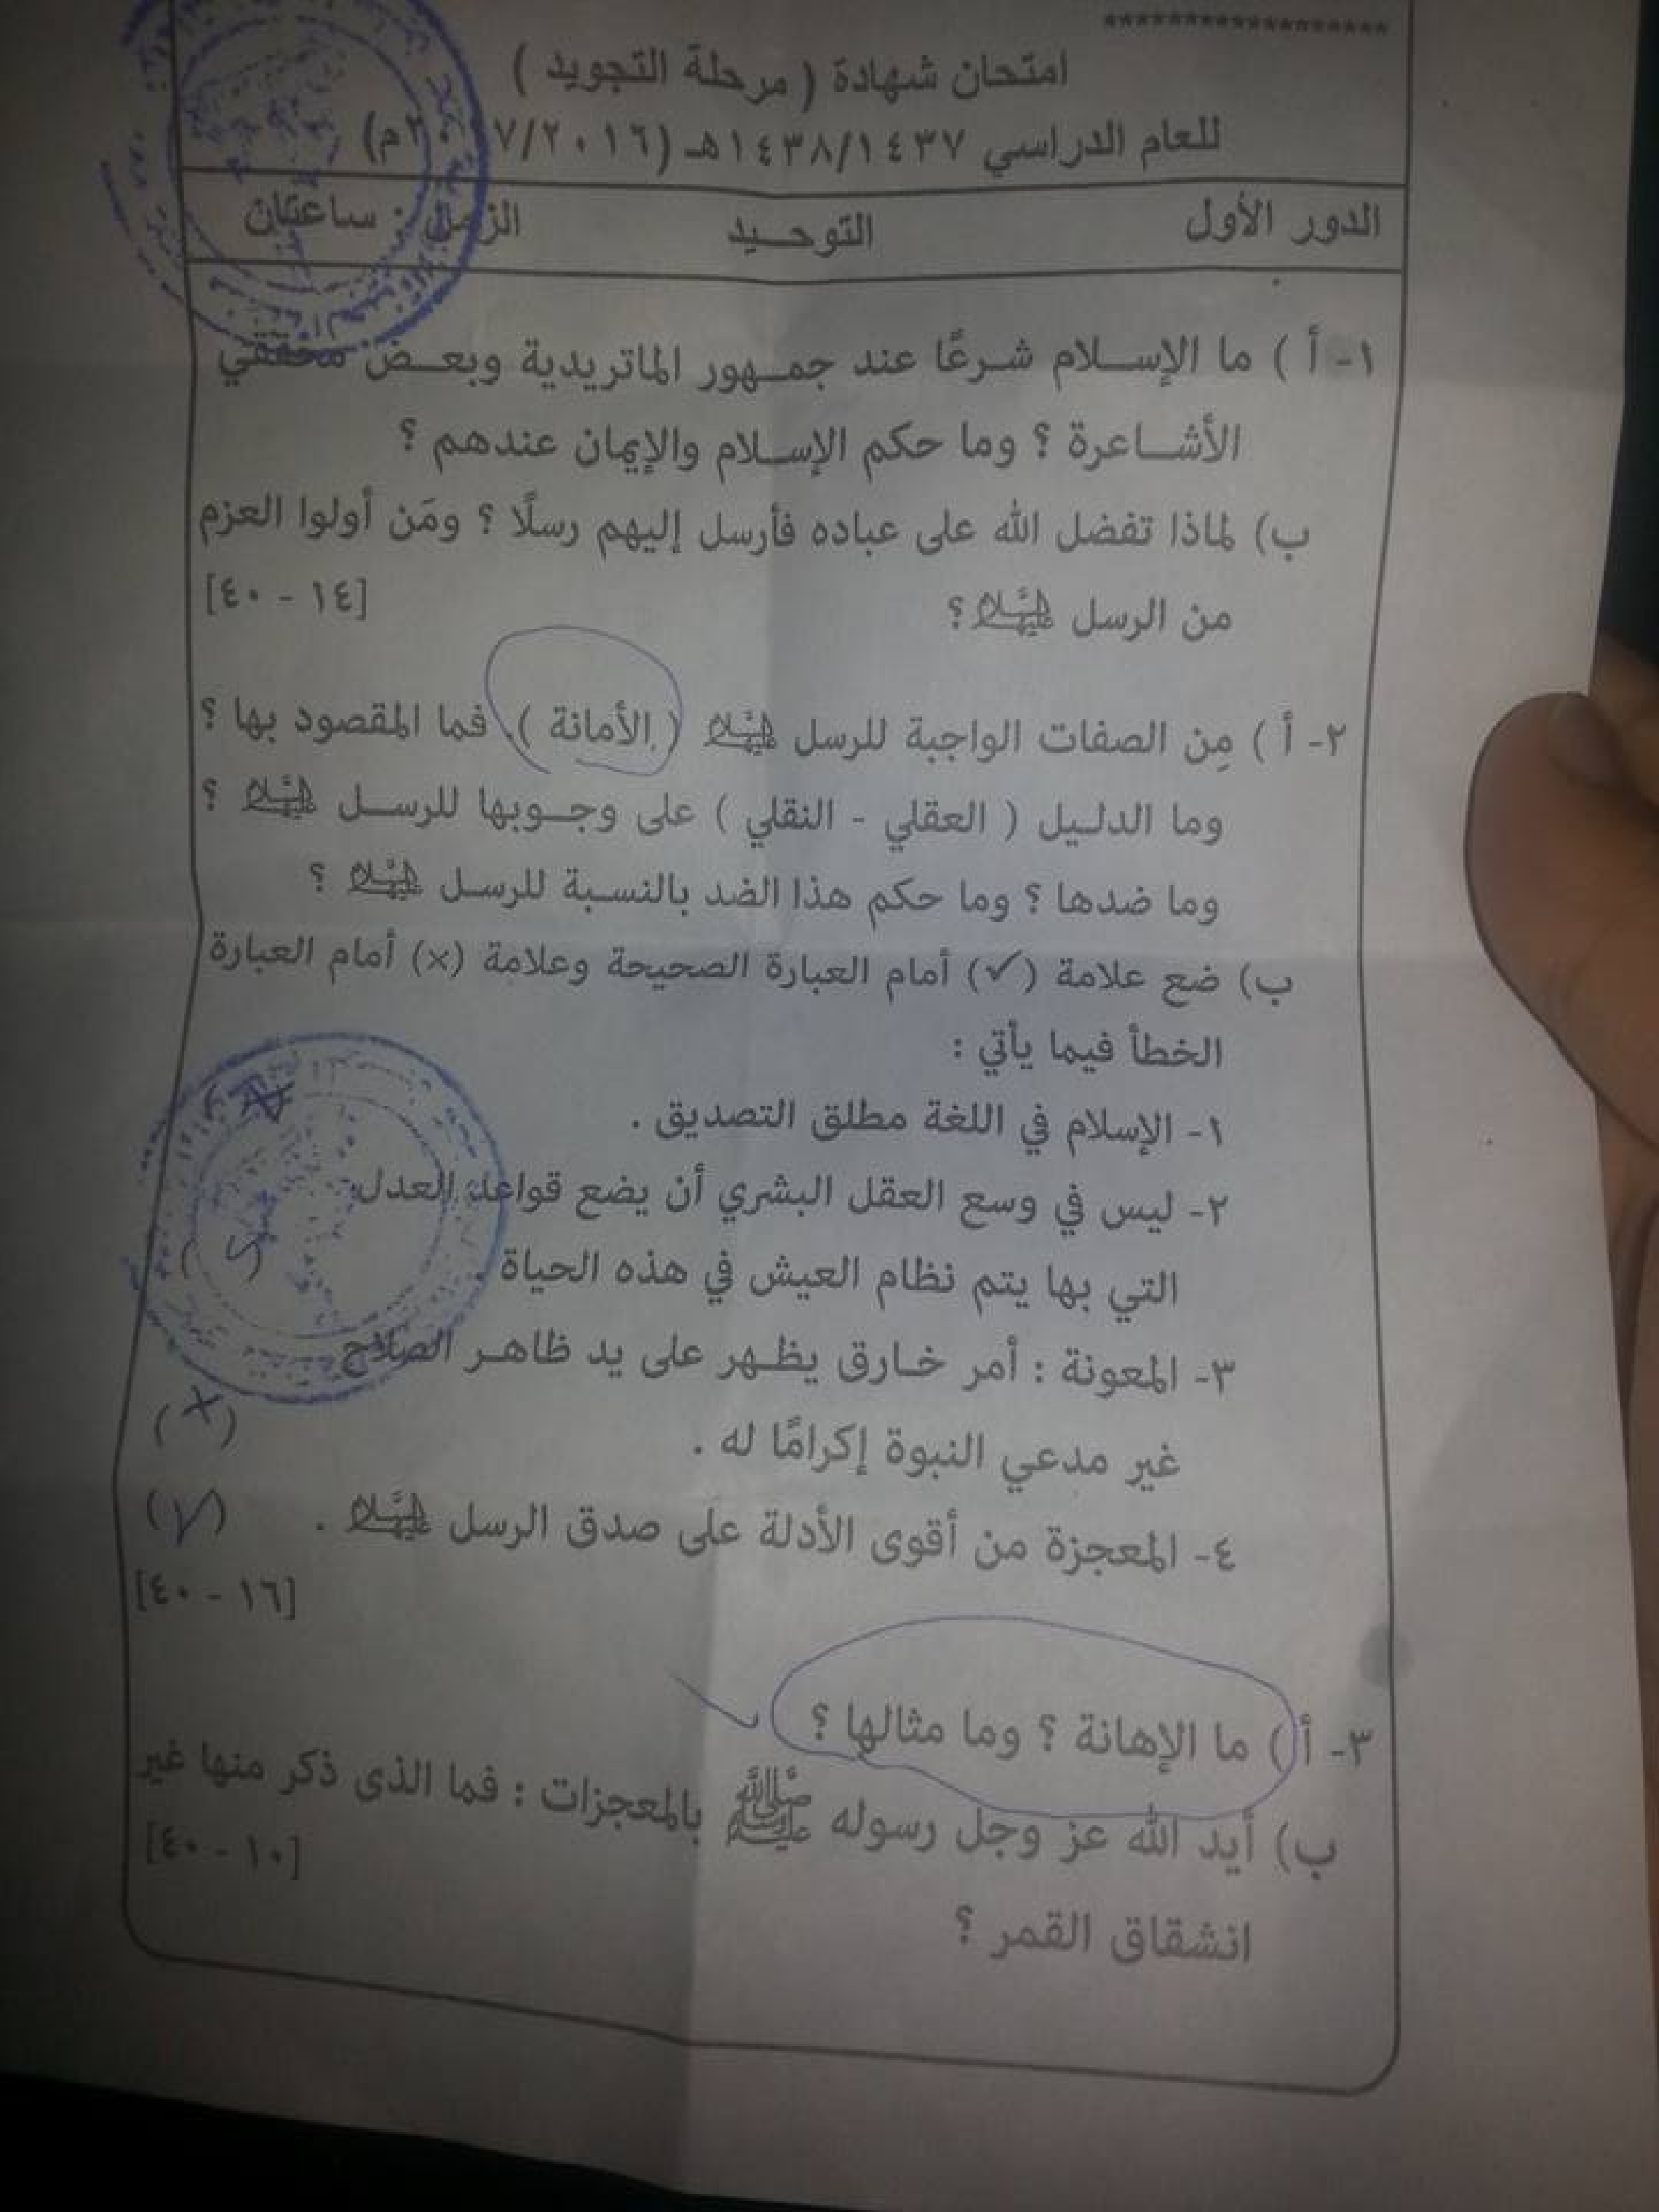 *******************
امتحان شهادة ( مرحلة التجويد )
للعام الدراسي ١٤٣٨/١٤٣٧هـ (٧/٢٠١٦ ٢٠م)
الدور الأول التوحـيد الزمن : ساعتان
١- أ ) ما الإسـلام شـرعًا عند جمـهور الماتريدية وبعـض محققي
الأشـاعرة ؟ وما حكم الإسـلام والإيمان عندهم ؟
ب) لماذا تفضل الله على عباده فأرسل إليهم رسلًا ؟ ومَن أولوا العزم
من الرسل عليهم السلام ؟
[١٤ - ٤٠]
٢- أ ) مِن الصفات الواجبة للرسل عليهم السلام ( الأمانة ) فما المقصود بها ؟
وما الدلـيل ( العقلي - النقلي ) على وجـوبها للرسـل عليهم السلام ؟
وما ضدها ؟ وما حكم هذا الضد بالنسـبة للرسـل عليهم السلام ؟
ب) ضع علامة (✓) أمام العبارة الصحيحة وعلامة (×) أمام العبارة
الخطأ فيما يأتي :
١- الإسلام في اللغة مطلق التصديق .
٢- ليس في وسع العقل البشري أن يضع قواعد العدل
التي بها يتم نظام العيش في هذه الحياة .
٣- المعونة : أمر خـارق يظـهر على يد ظاهـر الصلاح
غير مدعي النبوة إكرامًا له . (×)
٤- المعجزة من أقوى الأدلة على صدق الرسل عليهم السلام . (✓)
[١٦ - ٤٠]
٣- أ ) ما الإهانة ؟ وما مثالها ؟
ب) أيد الله عز وجل رسوله ﷺ بالمعجزات : فما الذى ذكر منها غير
انشقاق القمر ؟
[١٠ - ٤٠]